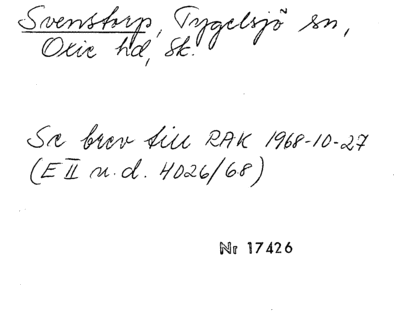 Svenstorp, Tygelsjö sn,
Oxie hd, Sk.
Se brev till RAK 1968-10-27
(E II n.d. 4026/68)
Nr 17426